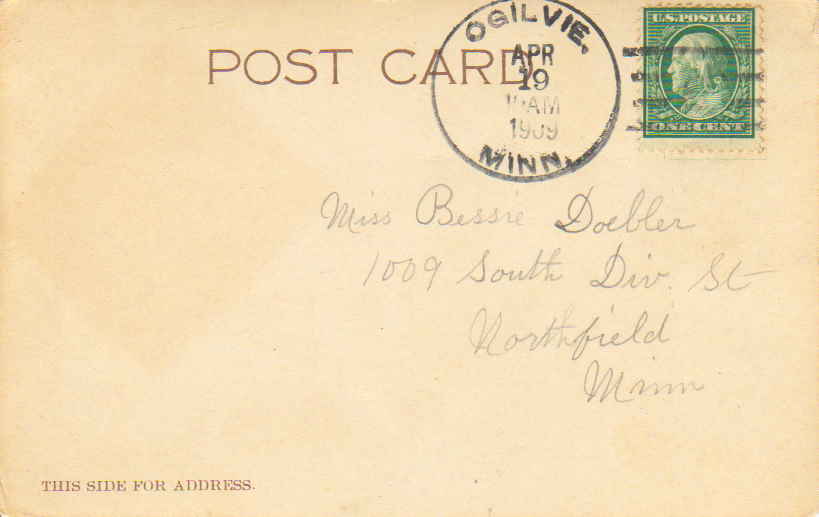 POST CARD
OGILVIE.
APR
19
AM
1909
MINN.
U.S. POSTAGE
ONE CENT
Miss Bessie Doebler
1009 South Div. St
Northfield
Minn
THIS SIDE FOR ADDRESS.